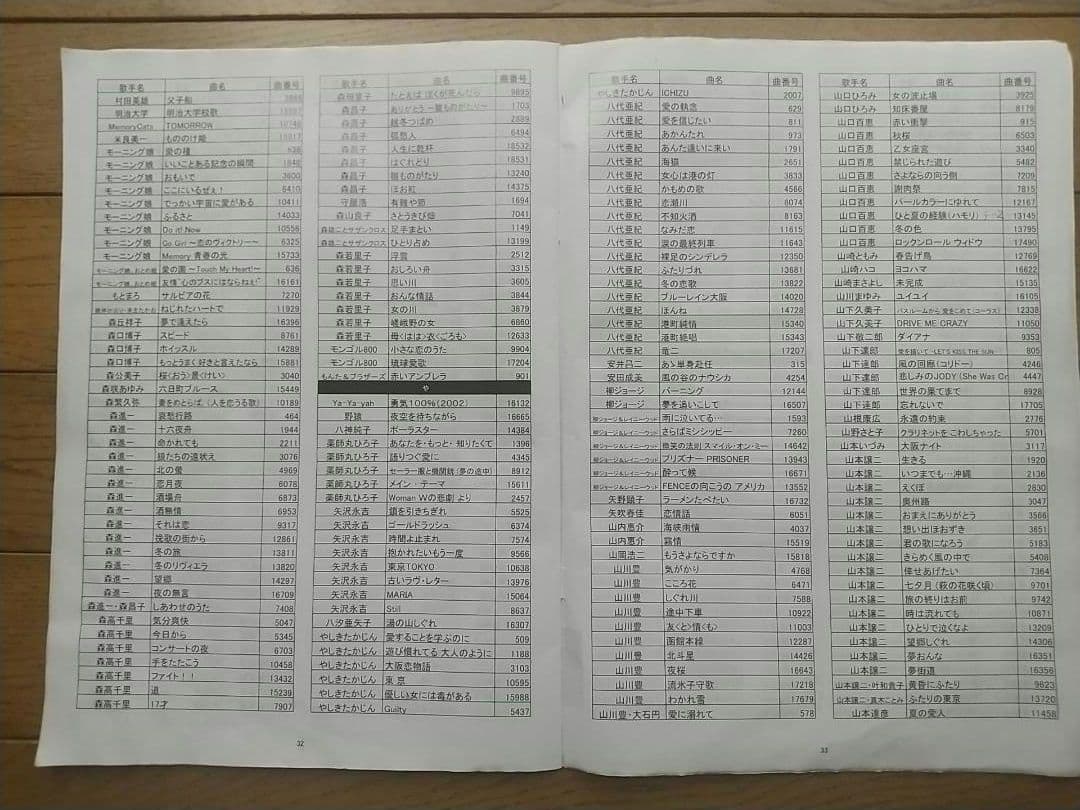 歌手名 曲名 曲番号
村田英雄 父子船
明治大学 明治大学校歌
MemoryCats TOMORROW
米良美一 もののけ姫
モーニング娘 愛の種 636
モーニング娘 いいことある記念の瞬間
モーニング娘 おもいで 3600
モーニング娘 ここにいるぜぇ! 6410
モーニング娘 でっかい宇宙に愛がある 10411
モーニング娘 ふるさと 14033
モーニング娘 Do it! Now 10556
モーニング娘 Go Girl ～恋のヴィクトリー～ 6325
モーニング娘 Memory 青春の光 15733
モーニング娘。おとめ組 愛の園 ～Touch My Heart!～ 636
モーニング娘。おとめ組 友情~心のブスにはならねぇ!~ 16161
もとまろ サルビアの花 7270
ねじれたハートで 11929
森丘祥子 夢で逢えたら 16396
森口博子 スピード 8761
森口博子 ホイッスル 14289
森口博子 もっとうまく好きと言えたなら 15881
森公美子 桜(おう)景<けい) 3040
森咲あゆみ 六日町ブルース 15449
森繁久弥 妻をめとらば、(人を恋うる歌) 10189
森進一 哀愁行路 464
森進一 十六夜舟 1944
森進一 命かれても 2211
森進一 狼たちの遠吠え 3076
森進一 北の螢 4969
森進一 恋月夜 6078
森進一 酒場舟 6873
森進一 酒無情 6953
森進一 それは恋 9317
森進一 挽歌の街から 12861
森進一 冬の旅 13811
森進一 冬のリヴィエラ 13820
森進一 望郷 14297
森進一 夜の無言 16709
森進一・森昌子 しあわせのうた 7408
森高千里 気分爽快 5047
森高千里 今日から 5345
森高千里 コンサートの夜 6703
森高千里 手をたたこう 10458
森高千里 ファイト!! 13432
森高千里 道 15239
森高千里 17才 7907
32
歌手名 曲名 曲番号
森田童子 たとえばぼくが死んだら 9895
森昌子 ありがとう～雛ものがたり～ 1703
森昌子 越冬つばめ 2889
森昌子 孤愁人 6494
森昌子 人生に乾杯 18532
森昌子 はぐれどり 18531
森昌子 雛ものがたり 13240
森昌子 ほお紅 14375
守屋浩 有難や節 1694
森山良子 さとうきび畑 7041
森雄二とサザンクロス 足手まとい 1149
森雄二とサザンクロス ひとり占め 13199
森若里子 浮雲 2512
森若里子 おしろい舟 3315
森若里子 思い川 3605
森若里子 おんな情話 3844
森若里子 女の川 3879
森若里子 嵯峨野の女 6860
森若里子 母<はは>衣<ごろも> 12633
モンゴル800 小さな恋のうた 9904
モンゴル800 琉球愛歌 17204
もんた&ブラザーズ 赤いアンブレラ 901
や
Ya-Ya-yah 勇気100%(2002) 16132
野猿 夜空を待ちながら 16665
八神純子 ポーラスター 14384
薬師丸ひろ子 あなたを・もっと・知りたくて 1396
薬師丸ひろ子 語りつぐ愛に 4345
薬師丸ひろ子 セーラー服と機関銃(夢の途中) 8912
薬師丸ひろ子 メイン・テーマ 15611
薬師丸ひろ子 Woman Wの悲劇より 2457
矢沢永吉 鎖を引きちぎれ 5525
矢沢永吉 ゴールドラッシュ 6374
矢沢永吉 時間よ止まれ 7574
矢沢永吉 抱かれたいもう一度 9566
矢沢永吉 東京TOKYO 10638
矢沢永吉 古いラヴ・レター 13976
矢沢永吉 MARIA 15064
矢沢永吉 Still 8637
八汐亜矢子 湯の山しぐれ 16307
やしきたかじん 愛することを学ぶのに 509
やしきたかじん 遊び慣れてる大人のように 1188
やしきたかじん 大阪恋物語 3103
やしきたかじん 東京 10595
やしきたかじん 優しい女には毒がある 15988
やしきたかじん Guilty 5437
歌手名 曲名 曲番号
やしきたかじん ICHIZU 2007
八代亜紀 愛の執念 629
八代亜紀 愛を信じたい 811
八代亜紀 あかんたれ 973
八代亜紀 あんた逢いに来い 1791
八代亜紀 海猫 2651
八代亜紀 女心は港の灯 3833
八代亜紀 かもめの歌 4566
八代亜紀 恋瀬川 6074
八代亜紀 不知火酒 8163
八代亜紀 なみだ恋 11615
八代亜紀 涙の最終列車 11643
八代亜紀 裸足のシンデレラ 12350
八代亜紀 ふたりづれ 13681
八代亜紀 冬の恋歌 13822
八代亜紀 ブルーレイン大阪 14020
八代亜紀 ほんね 14728
八代亜紀 港町純情 15340
八代亜紀 港町絶唱 15343
八代亜紀 竜二 17207
安井昌二 あゝ単身赴任 315
安田成美 風の谷のナウシカ 4254
柳ジョージ バーニング 12144
柳ジョージ 夢を追いこして 16507
柳ジョージ&レイニーウッド 雨に泣いてる… 1593
柳ジョージ&レイニーウッド さらばミシシッピー 7260
柳ジョージ&レイニーウッド 微笑の法則 スマイル・オン・ミー 14642
柳ジョージ&レイニーウッド プリズナー PRISONER 13943
柳ジョージ&レイニーウッド 酔って候 16671
柳ジョージ&レイニーウッド FENCEの向こうのアメリカ 13552
矢野顕子 ラーメンたべたい 16732
矢吹春佳 恋情話 6051
山内惠介 海峡雨情 4037
山内惠介 霧情 15519
山岡浩二 もうさよならですか 15818
山川豊 気がかり 4768
山川豊 こころ花 6471
山川豊 しぐれ川 7588
山川豊 途中下車 10922
山川豊 友<と>情<も> 11003
山川豊 函館本線 12287
山川豊 北斗星 14426
山川豊 夜桜 16643
山川豊 流氷子守歌 17218
山川豊 わかれ雪 17679
山川豊・大石円 愛に溺れて 578
33
歌手名 曲名 曲番号
山口ひろみ 女の波止場 3925
山口ひろみ 知床番屋 8179
山口百恵 赤い衝撃 915
山口百恵 秋桜 6503
山口百恵 乙女座宮 3340
山口百恵 禁じられた遊び 5482
山口百恵 さよならの向う側 7209
山口百恵 謝肉祭 7815
山口百恵 パールカラーにゆれて 12167
山口百恵 ひと夏の経験(ハモリ) 13145
山口百恵 冬の色 13795
山口百恵 ロックンロール ウイドウ 17490
山崎ともみ 春告げ鳥 12769
山崎ハコ ヨコハマ 16622
山崎まさよし 未完成 15135
山川まゆみ ユイユイ 16105
山下久美子 バスルームから愛をこめて(コーラス) 12338
山下久美子 DRIVE ME CRAZY 11050
山下敬二郎 ダイアナ 9353
山下達郎 愛を描いて-LET'S KISS THE SUN 805
山下達郎 風の回廊(コリドー) 4246
山下達郎 悲しみのJODY (She Was Cr 4447
山下達郎 世界の果てまで 8928
山下達郎 忘れないで 17705
山根康広 永遠の約束 2776
山野さと子 クラリネットをこわしちゃった 5701
山本いづみ 大阪ナイト 3117
山本譲二 生きる 1920
山本譲二 いつまでも…沖縄 2136
山本譲二 えくぼ 2830
山本譲二 奥州路 3047
山本譲二 おまえにありがとう 3566
山本譲二 想い出ほおずき 3651
山本譲二 君の歌になろう 5183
山本譲二 きらめく風の中で 5408
山本譲二 倖せあげたい 7364
山本譲二 七夕月(萩の花咲く頃) 9701
山本譲二 旅の終りはお前 9742
山本譲二 時は流れても 10871
山本譲二 ひとりで泣くなよ 13209
山本譲二 望郷しぐれ 14306
山本譲二 夢おんな 16351
山本譲二 夢街道 16356
山本譲二・叶和貴子 黄昏にふたり 9623
山本譲二・真木ことみ ふたりの東京 13720
山本達彦 夏の愛人 11458